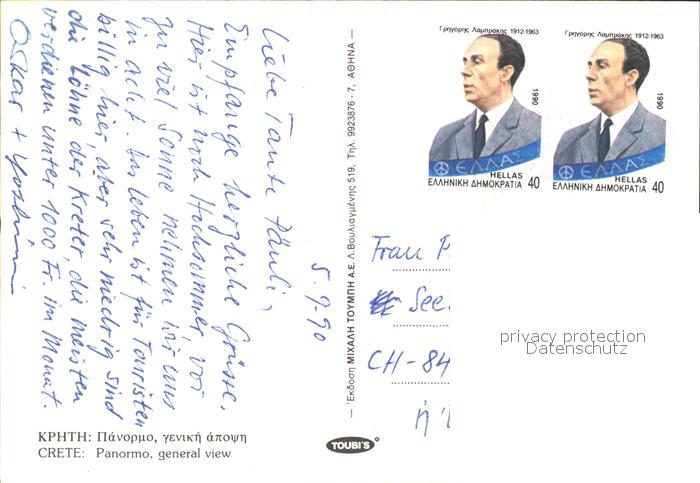 5.9.90
Liebe Tante Päuli,
Empfange herzliche Grüsse.
Hier ist noch Hochsommer. Vor
zu viel Sonne nehmen wir uns
in acht. Das Leben ist für Touristen
billig hier, aber sehr niedrig sind
die Löhne der Kreter, die meisten
verdienen unter 1000 Fr. im Monat.
Oskar +
ΚΡΗΤΗ: Πάνορμο, γενική άποψη
CRETE: Panormo, general view
— Έκδοση ΜΙΧΑΛΗ ΤΟΥΜΠΗ Α.Ε. Λ.Βουλιαγμένης 519, Τηλ. 9923876 - 7, ΑΘΗΝΑ —
TOUBI'S
Γρηγόρης Λαμπράκης 1912-1963
1990
ΕΛΛΑΣ
HELLAS
ΕΛΛΗΝΙΚΗ ΔΗΜΟΚΡΑΤΙΑ 40
Γρηγόρης Λαμπράκης 1912-1963
1990
ΕΛΛΑΣ
HELLAS
ΕΛΛΗΝΙΚΗ ΔΗΜΟΚΡΑΤΙΑ 40
Frau P
See
CH-84
privacy protection
Datenschutz